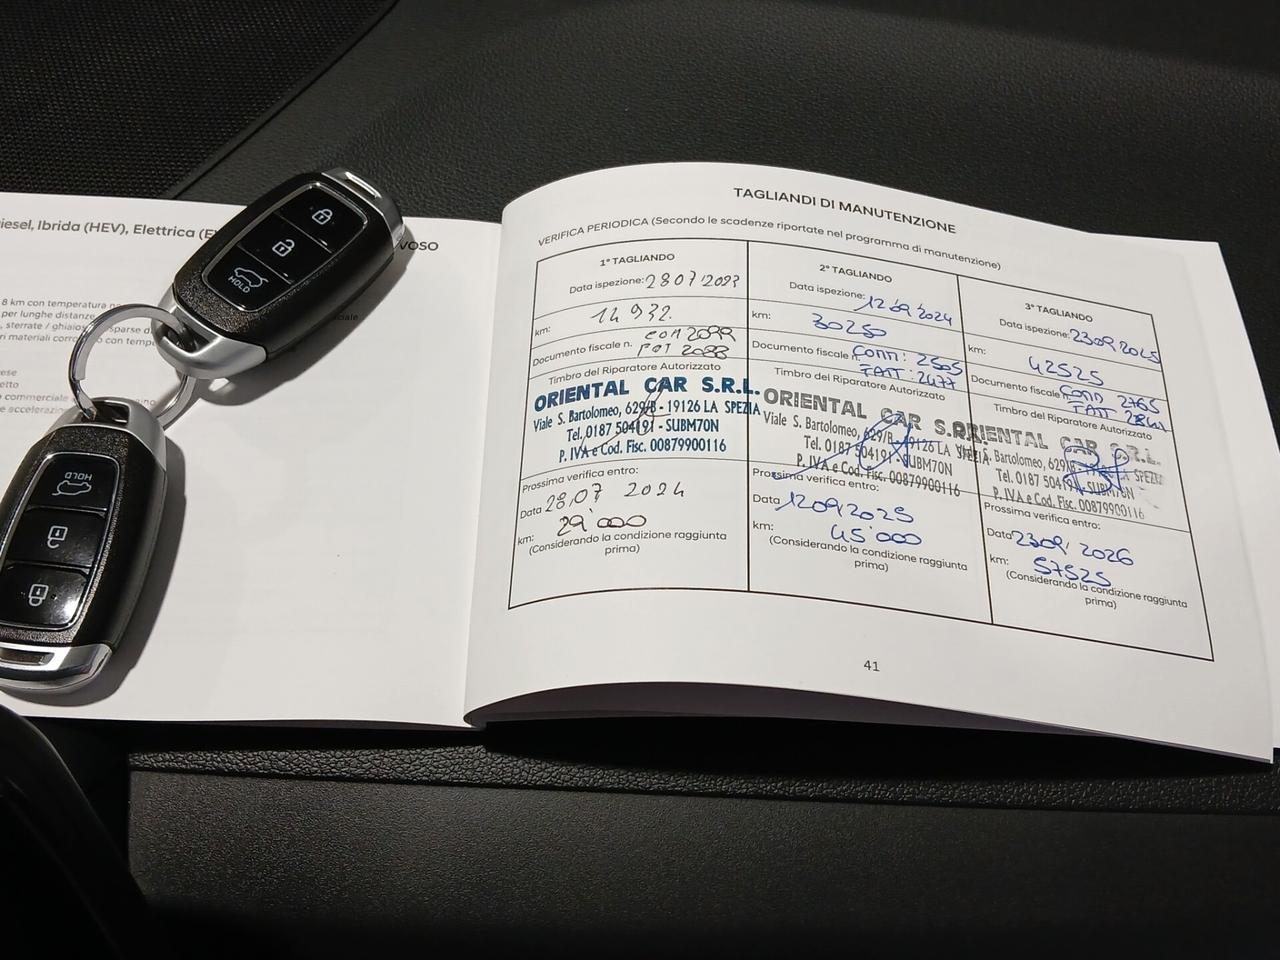 iesel, Ibrida (HEV), Elettrica (E
VOSO
8 km con temperatura
per lunghe distanze
, sterrate / ghiaios
sparse d
ri materiali
con temp
rese
etto
o commerciale
e accelerazion
HOLD
HOLD
TAGLIANDI DI MANUTENZIONE
VERIFICA PERIODICA (Secondo le scadenze riportate nel programma di manutenzione)
1° TAGLIANDO
Data ispezione: 28 07 2023
km: 14 932
Documento fiscale n. COM 2099
FAT 2088
Timbro del Riparatore Autorizzato
ORIENTAL CAR S.R.L.
Viale S. Bartolomeo, 629/B - 19126 LA SPEZIA
Tel. 0187 504191 - SUBM70N
P. IVA e Cod. Fisc. 00879900116
Prossima verifica entro:
Data 28.07 2024
km: 29'000
(Considerando la condizione raggiunta
prima)
2° TAGLIANDO
Data ispezione: 12 09 2024
km: 30250
Documento fiscale n. COMM: 2505
FATT: 2477
Timbro del Riparatore Autorizzato
ORIENTAL CAR S.R.
Viale S. Bartolomeo, 629/B - 19126 LA SPEZIA
Tel. 0187 504191 - SUBM70N
P. IVA e Cod. Fisc. 00879900116
Prossima verifica entro:
Data 12 09/2025
km: 45'000
(Considerando la condizione raggiunta
prima)
3° TAGLIANDO
Data ispezione: 23 09 2025
km: 42525
Documento fiscale COMM 2765
FATT
Timbro del Riparatore Autorizzato
ORIENTAL CAR S.R.L.
S. Bartolomeo, 629/B - 19126 LA SPEZIA
Tel. 0187 504191 - SUBM70N
P. IVA e Cod. Fisc. 00879900116
Prossima verifica entro:
Data 23 09/ 2026
km: 57525
(Considerando la condizione raggiunta
prima)
41